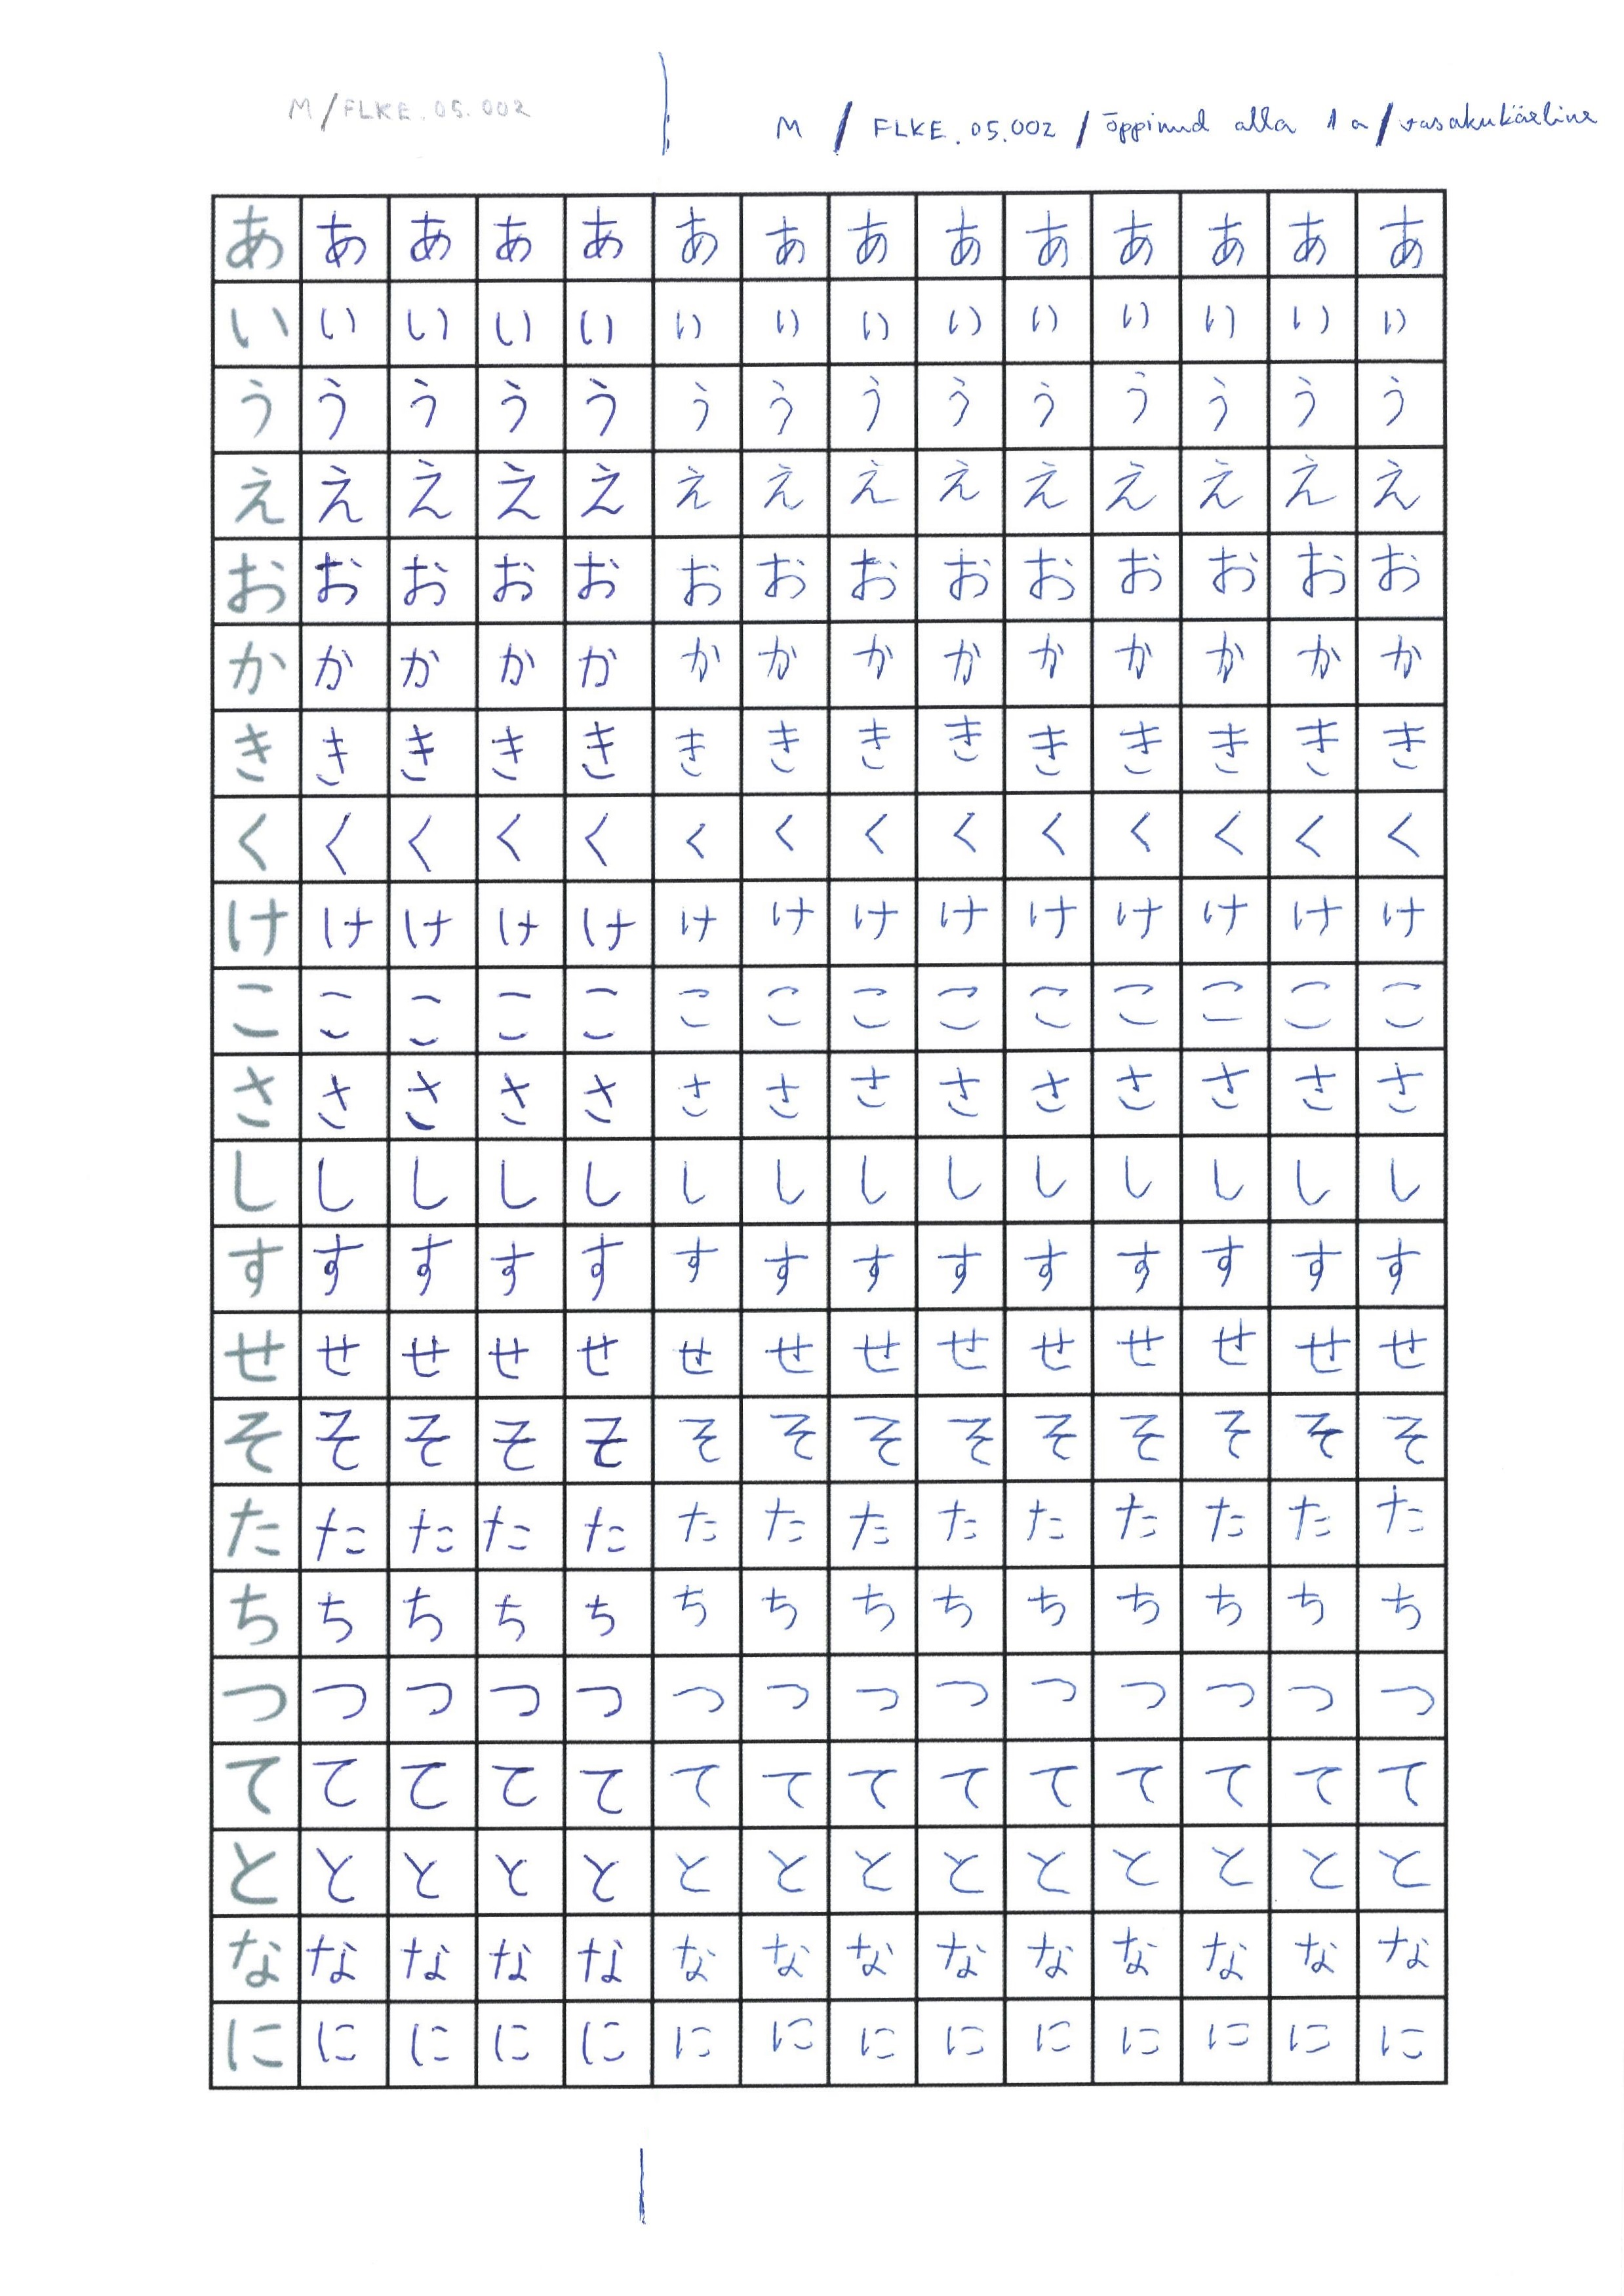 M/FLKE.05.002
M / FLKE.05.002 / õppinud alla 1 a / vasakukäeline
あ あ あ あ あ あ あ あ あ あ あ あ あ あ
い い い い い い い い い い い い い い
う う う う う う う う う う う う う う
え え え え え え え え え え え え え え
お お お お お お お お お お お お お お
か か か か か か か か か か か か か か
き き き き き き き き き き き き き き
く く く く く く く く く く く く く く
け け け け け け け け け け け け け け
こ こ こ こ こ こ こ こ こ こ こ こ こ こ
さ さ さ さ さ さ さ さ さ さ さ さ さ さ
し し し し し し し し し し し し し し
す す す す す す す す す す す す す す
せ せ せ せ せ せ せ せ せ せ せ せ せ せ
そ そ そ そ そ そ そ そ そ そ そ そ そ そ
た た た た た た た た た た た た た た
ち ち ち ち ち ち ち ち ち ち ち ち ち ち
つ つ つ つ つ つ つ つ つ つ つ つ つ つ
て て て て て て て て て て て て て て
と と と と と と と と と と と と と と
な な な な な な な な な な な な な な
に に に に に に に に に に に に に に